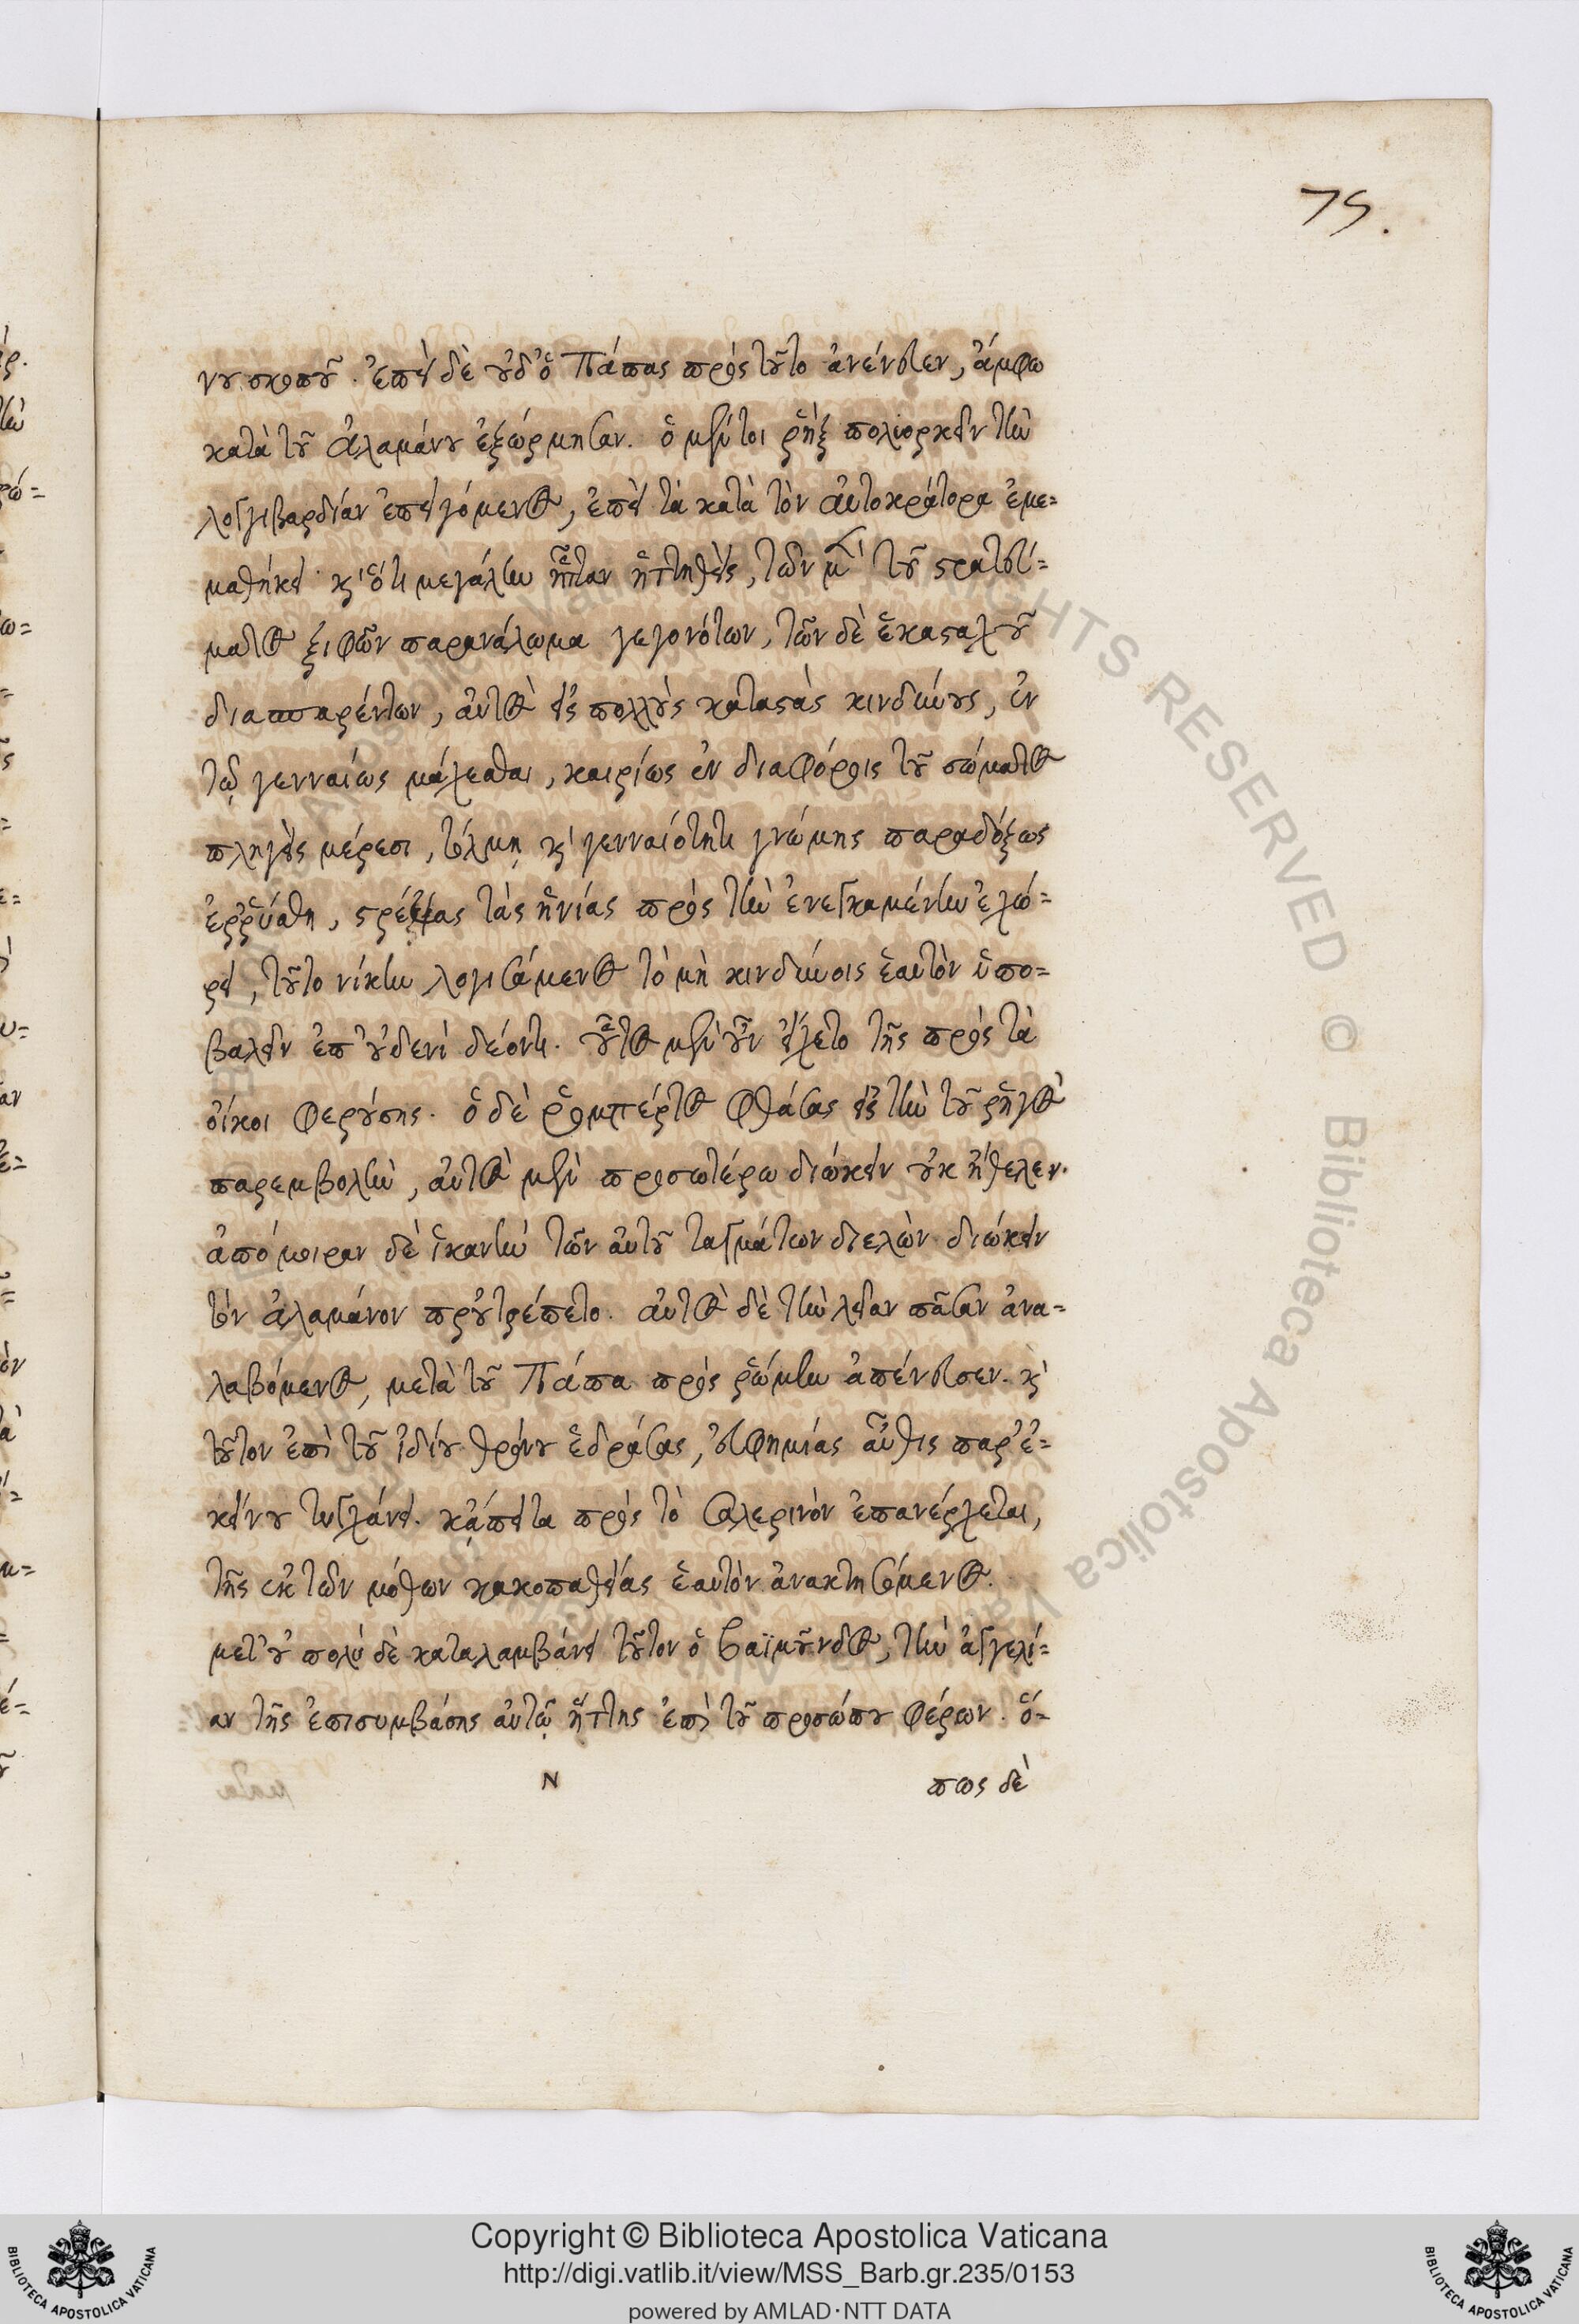 75.
νου σκοποῦ. ἐπεὶ δὲ οὐδ' ὁ Πάπας πρὸς τοῦτο ἀνένευεν, ἄμφω
κατὰ τοῦ Ἀλαμάνου ἐξώρμησαν. ὁ μέντοι ῥὴξ πολιορκεῖν τὴν
λογγιβαρδίαν ἐπειγόμενος, ἐπεὶ τὰ κατὰ τὸν αὐτοκράτορα ἐμε=
μαθήκει καὶ ὅτι μεγάλην ἧτταν ἡττηθεὶς, τῶν μὲν τοῦ στρατεύ=
ματος ξιφῶν παρανάλωμα γεγονότων, τῶν δὲ ἑκασταχοῦ
διασπαρέντων, αὐτὸς εἰς πολλοὺς καταστὰς κινδύνους, ἐν
τῷ γενναίως μάχεσθαι, καιρίως ἐν διαφόροις τοῦ σώματος
πληγεὶς μέρεσι, τόλμῃ καὶ γενναιότητι γνώμης παραδόξως
ἐῤῥύσθη, στρέψας τὰς ἡνίας πρὸς τὴν ἐνεγκαμένην ἐχώ=
ρει, τοῦτο νίκην λογισάμενος τὸ μὴ κινδύνοις ἑαυτὸν ὑπο=
βαλεῖν ἐπ' οὐδενὶ δέοντι. οὗτος μὲν οὖν εἴχετο τῆς πρὸς τὰ
οἴκοι φερούσης. ὁ δὲ ῥομπέρτος φθάσας εἰς τὴν τοῦ ῥηγὸς
παρεμβολὴν, αὐτὸς μὲν προσωτέρω διώκειν οὐκ ἤθελεν.
ἀπόμοιραν δὲ ἱκανὴν τῶν αὐτοῦ ταγμάτων διελὼν διώκειν
τὸν ἀλαμάνον προὐτρέπετο. αὐτὸς δὲ τὴν λείαν πᾶσαν ἀνα=
λαβόμενος, μετὰ τοῦ Πάπα πρὸς ῥώμην ἀπένευσεν. καὶ
τοῦτον ἐπὶ τοῦ ἰδίου θρόνου ἑδράσας, εὐφημίας αὖθις παρ' ἐ=
κείνου τυγχάνει. κἄπειτα πρὸς τὸ Σαλερινὸν ἐπανέρχεται,
τῆς ἐκ τῶν μόθων κακοπαθείας ἑαυτὸν ἀνακτησόμενος.
μετ' οὐ πολὺ δὲ καταλαμβάνει τοῦτον ὁ βαϊμοῦνδος, τὴν ἀγγελί=
αν τῆς ἐπισυμβάσης αὐτῷ ἥττης ἐπὶ τοῦ προσώπου φέρων. ὅ=
N πως δὲ
RIGHTS RESERVED © Biblioteca Apostolica Vaticana
Copyright © Biblioteca Apostolica Vaticana
http://digi.vatlib.it/view/MSS_Barb.gr.235/0153
powered by AMLAD·NTT DATA
BIBLIOTECA APOSTOLICA VATICANA
BIBLIOTECA APOSTOLICA VATICANA